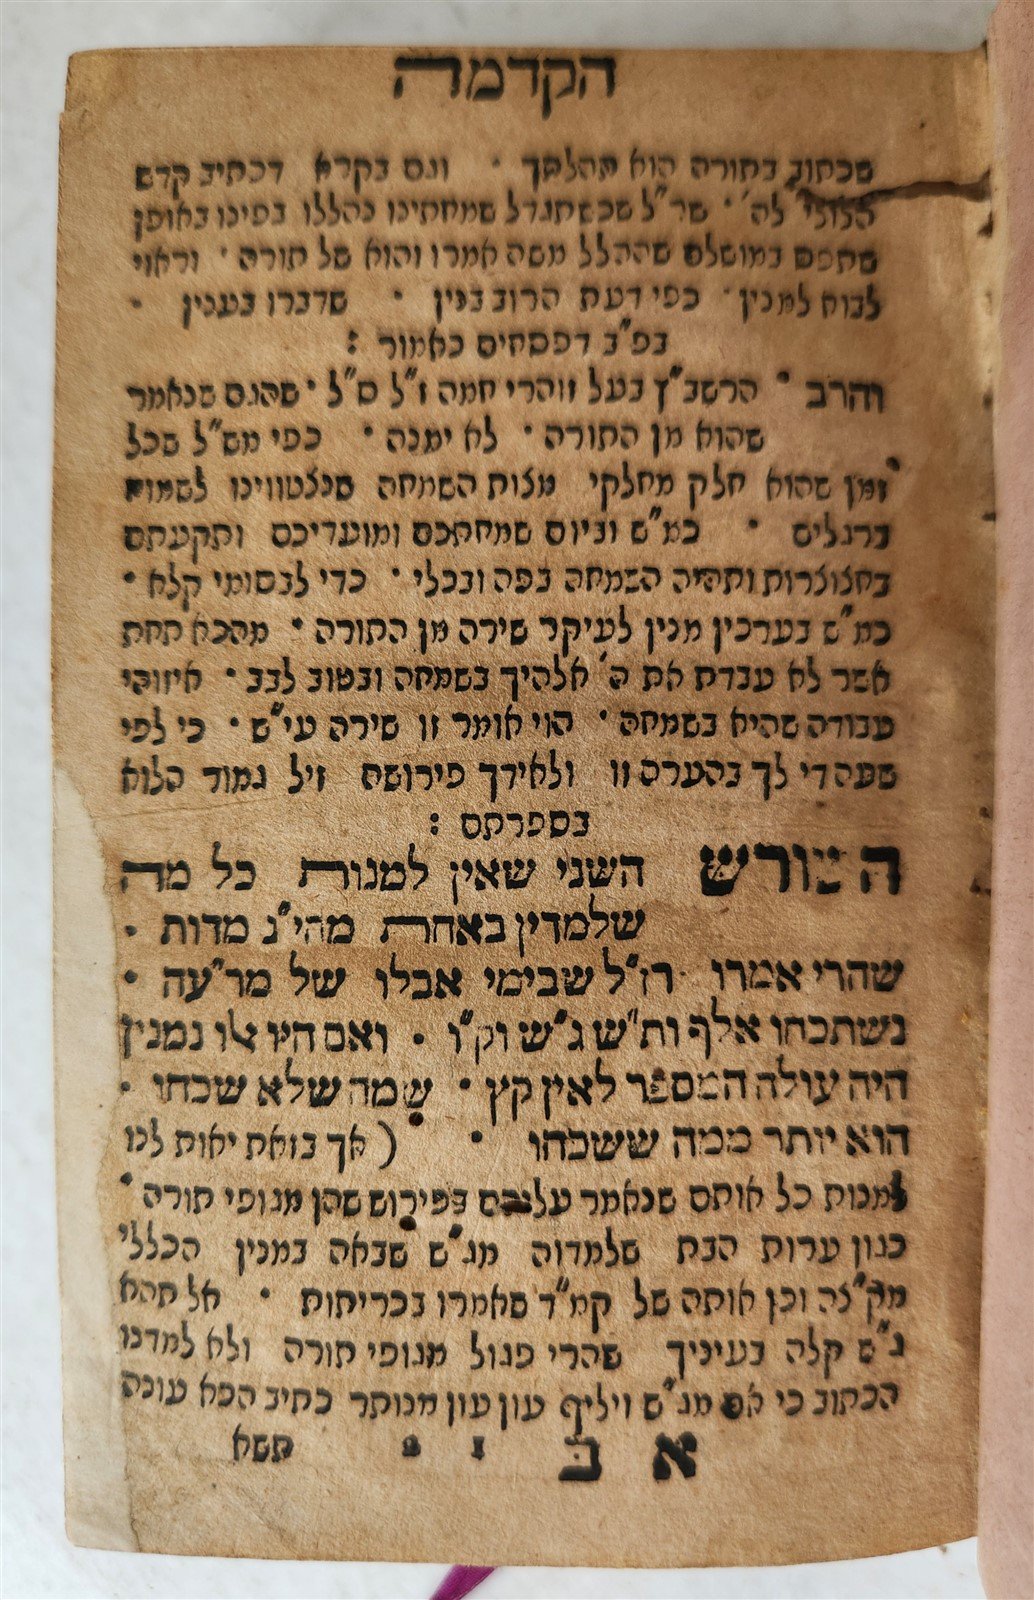 הקדמה
שכתוב בתורה הוא תהלתך · וגם בקרא דכתיב קדש
הלולי לה׳ · שר״ל שכשתגדל שמחתינו נהללו בפינו באופן
שתפס במושלם שההלל משה אמרו והוא של תורה · וראוי
לבוא למנין · כפי דעת הרוב בנין · שדברו בענין ·
בפ״ב דפסחים כאמור :
והרב · הרשב״ץ בעל זוהרי חמה ז״ל ס״ל · שהגם שנאמר
שהוא מן התורה · לא ימנה · כפי מש״ל שכל
זמן שהוא חלק מחלקי מצות השמחה שנצטווינו לשמוח
ברגלים · כמ״ש וביום שמחתכם ומועדיכם ותקעתם
בחצוצרות ותהיה השמחה בפה ובכלי · כדי לבסומי קלא ·
כמ״ש בערכין מנין לעיקר שירה מן התורה · מהכא תחת
אשר לא עבדת את ה׳ אלהיך בשמחה ובטוב לבב · איזוהי
עבודה שהיא בשמחה · הוי אומר זו שירה עי״ש · כי לפי
שעה די לך בהערה זו ולאידך פירושה זיל גמור הלוא
בספרתם :
השורש השני שאין למנות כל מה
שלמדין באחת מהי״ג מדות ·
שהרי אמרו רז״ל שבימי אבלו של מר״עה ·
נשתכחו אלף ות״ש ג״ש וק״ו · ואם היו אלו נמנין
היה עולה המספר לאין קץ · שמה שלא שכחו ·
הוא יותר ממה ששכחו · ( אך בזאת יאות לנו
למנות כל אותם שנאמר עליהם בפירוש שהן מגופי תורה ·
כגון ערות הבת שלמדוה מג״ש שבאה במנין הכללי
וכן אותה של קמ״ד שאמרו בכריתות · אל תהא
ג״ש קלה בעיניך שהרי פגול מגופי תורה ולא למדנו
הכתוב כי אם מג״ש ויליף עון עון מנותר כתיב הכא עונה
א ב 1 2 תשא